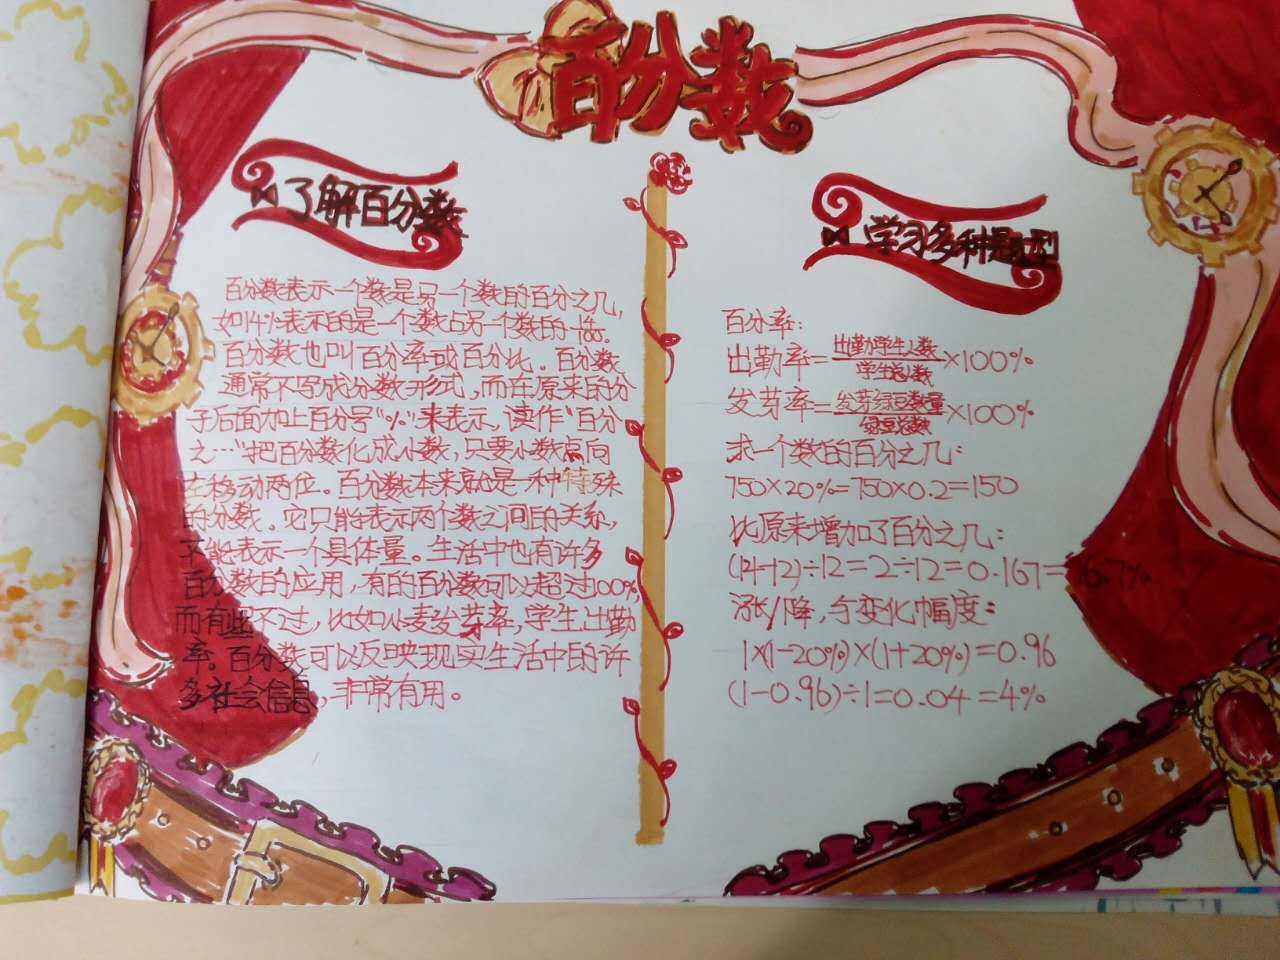 百分数
了解百分数
百分数表示一个数是另一个数的百分之几,
如14%表示的是一个数占另一个数的
百分数也叫百分率或百分比。百分数
通常不写成分数形式,而在原来的分
子后面加上百分号"%"来表示,读作"百分
之…"把百分数化成小数,只要小数点向
左移动两位。百分数本来就是一种特殊
的分数。它只能表示两个数之间的关系,
不能表示一个具体量。生活中也有许多
百分数的应用,有的百分数可以超过100%,
而有些不过,比如小麦发芽率,学生出勤
率。百分数可以反映现实生活中的许
多社会信息,非常有用。
学习多种题型
百分率:
出勤率=出勤学生人数/学生总人数×100%
发芽率=发芽绿豆数量/绿豆总数×100%
求一个数的百分之几:
750×20%=750×0.2=150
比原来增加了百分之几:
(14-12)÷12=2÷12=0.167=16.7%
涨/降,与变化幅度:
1×(1-20%)×(1+20%)=0.96
(1-0.96)÷1=0.04=4%